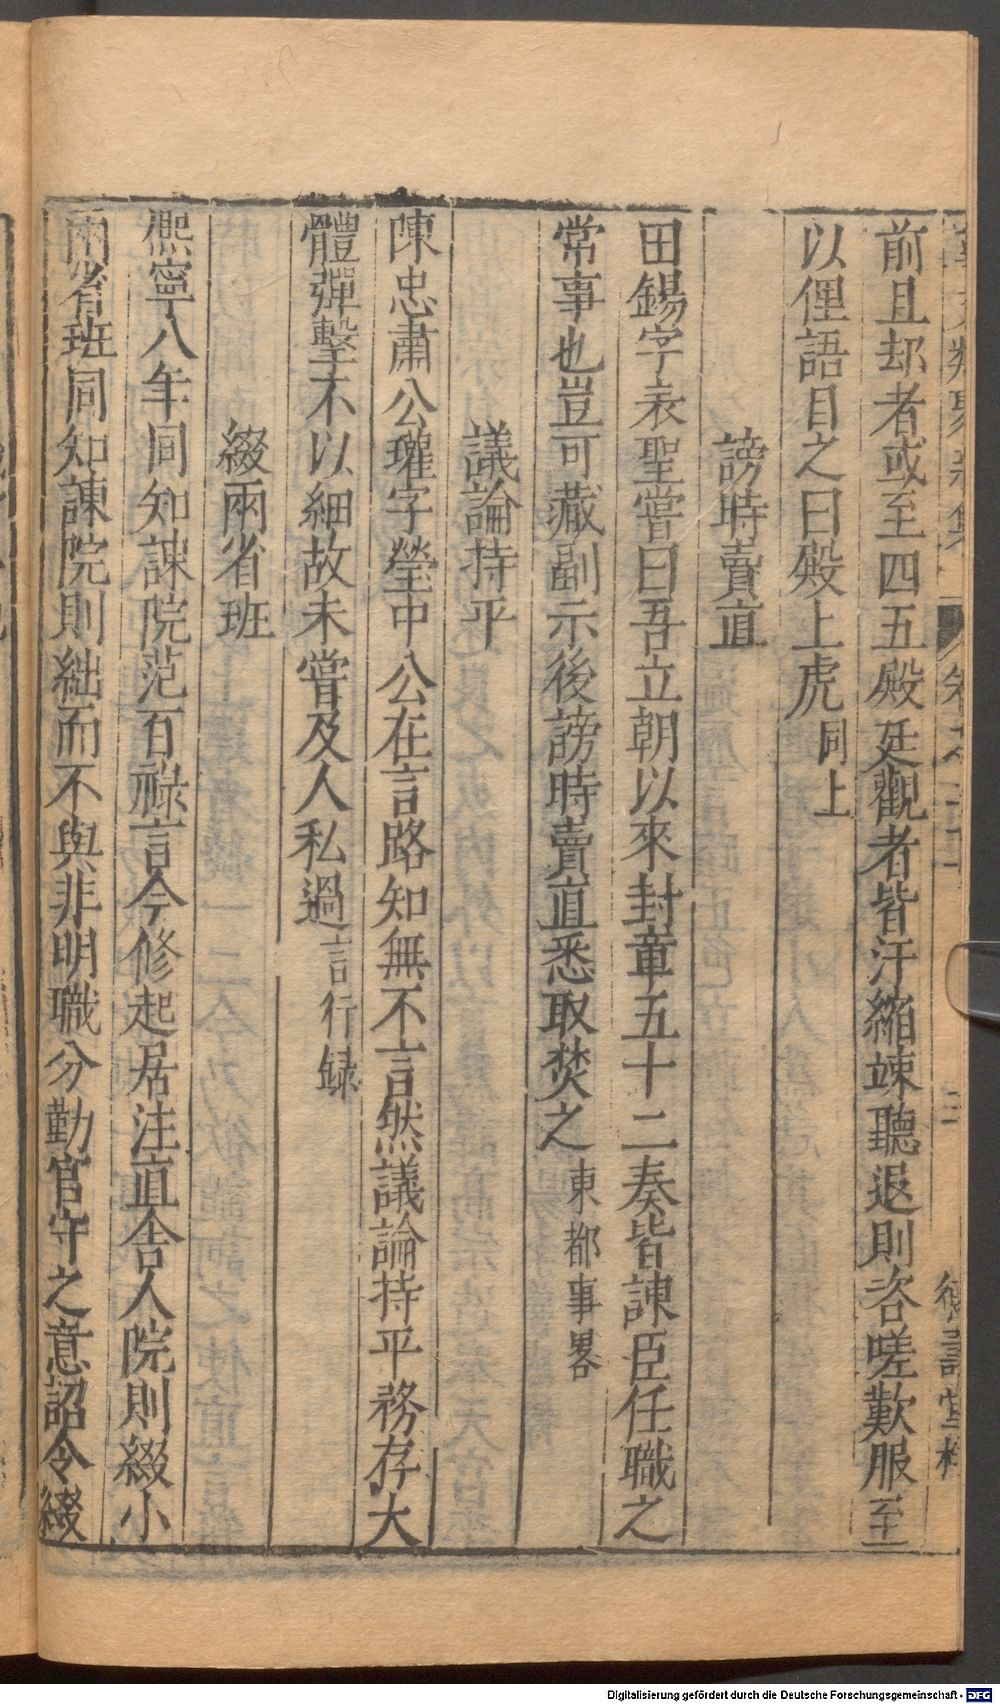 前且却者或至四五殿廷觀者皆汗縮竦聽退則咨嗟歎服至
以俚語目之曰殿上虎同上
謗時賣直
田錫字表聖嘗曰吾立朝以來封章五十二奏皆諫臣任職之
常事也豈可藏副示後謗時賣直悉取焚之東都事畧
議論持平
陳忠肅公瓘字瑩中公在言路知無不言然議論持平務存大
體彈擊不以細故未嘗及人私過言行録
綴兩省班
熈寧八年同知諫院范百祿言今修起居注直舍人院則綴小
兩省班同知諫院則絀而不與非明職分勤官守之意詔令綴
Digitalisierung gefördert durch die Deutsche Forschungsgemeinschaft - DFG